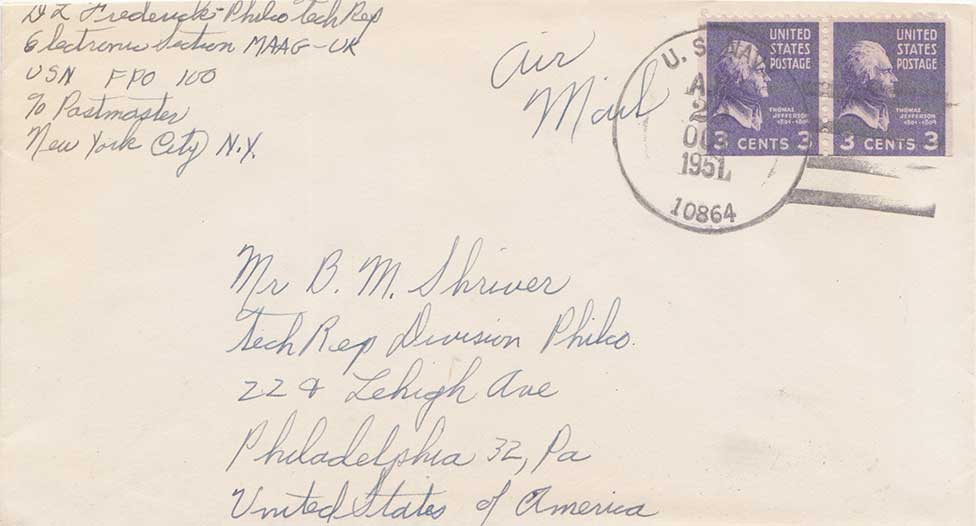 D L Frederick - Philco Tech Rep
Electronic Section MAAG-UK
USN FPO 100
% Postmaster
New York City N.Y.
Air
Mail
U.S. NAVY
2
1951
10864
UNITED
STATES
POSTAGE
THOMAS
JEFFERSON
1801-1809
3 CENTS 3
UNITED
STATES
POSTAGE
THOMAS
JEFFERSON
1801-1809
3 CENTS 3
Mr B. M. Shriver
Tech Rep Division Philco.
22 & Lehigh Ave
Philadelphia 32, Pa
United States of America